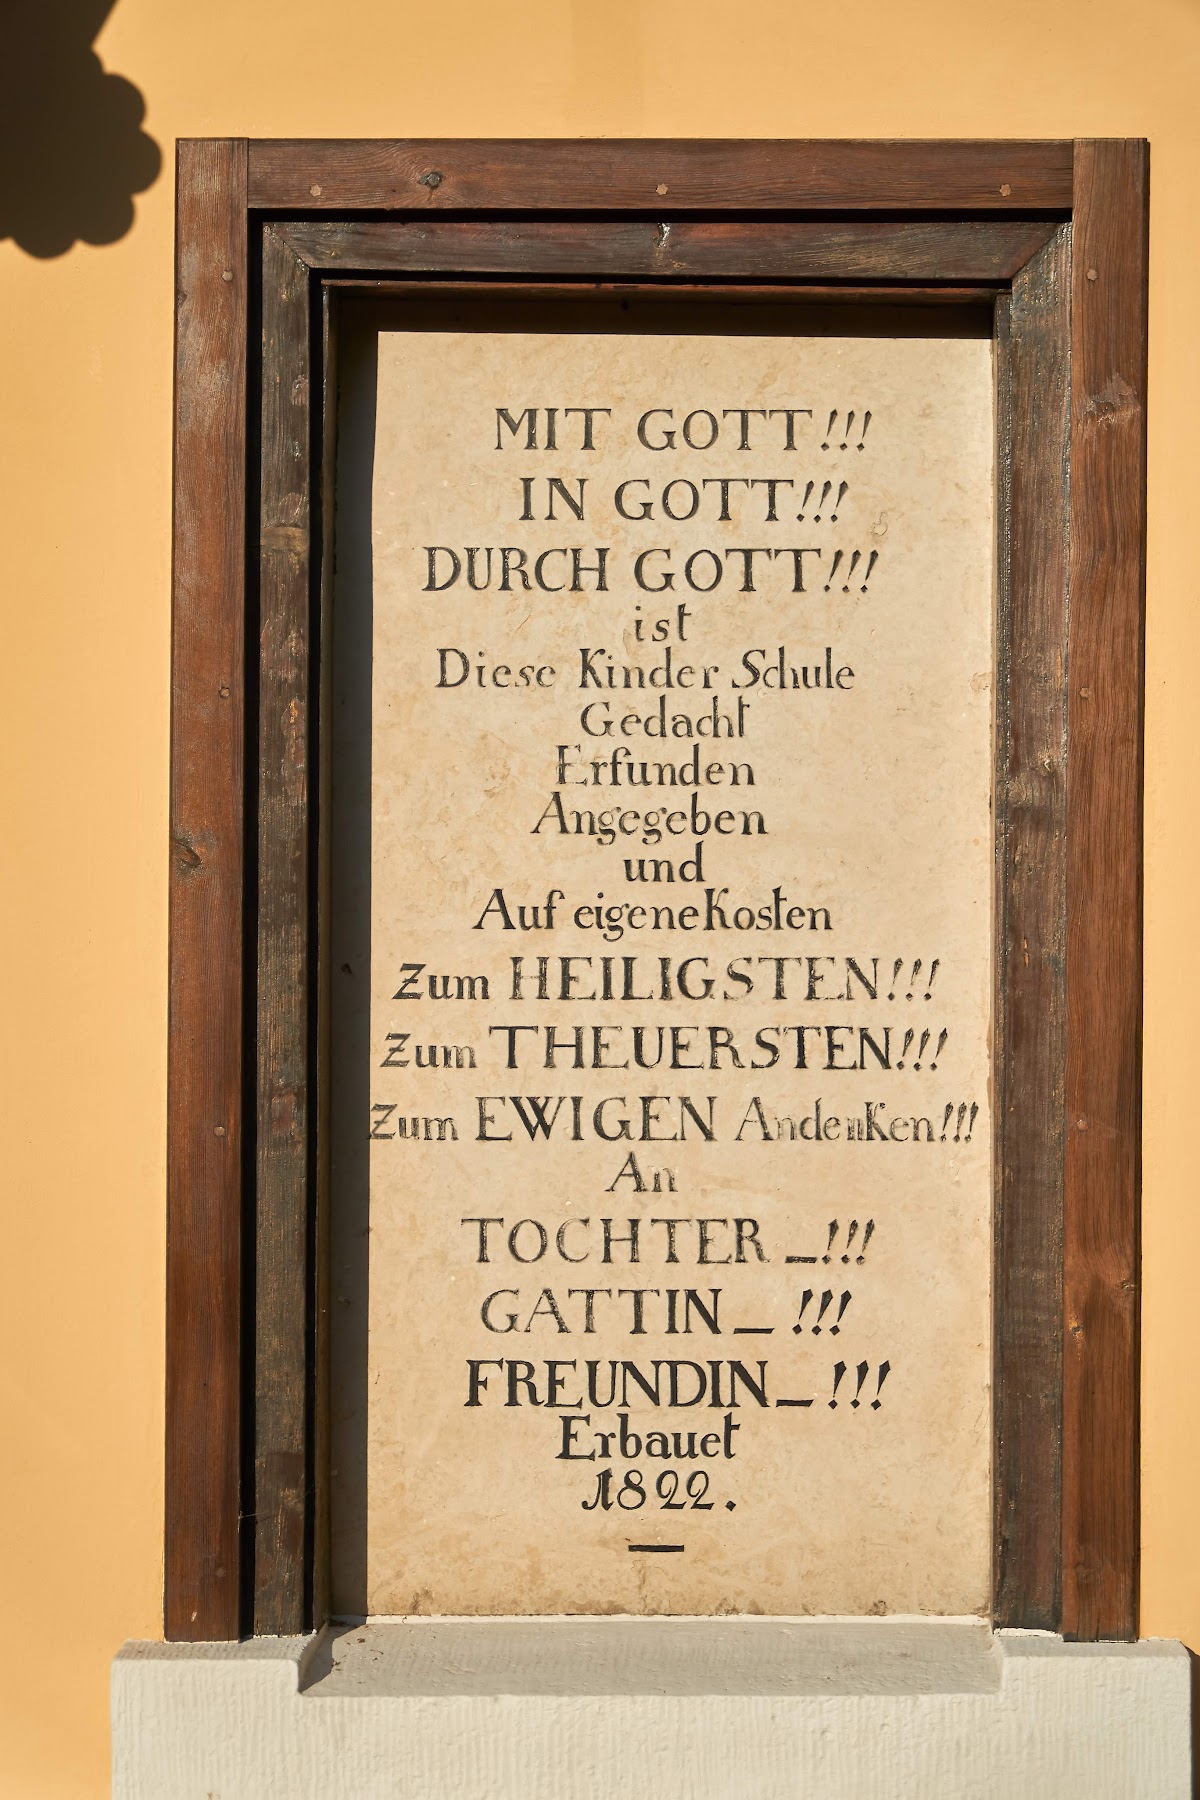 MIT GOTT!!!
IN GOTT!!!
DURCH GOTT!!!
ist
Diese Kinder Schule
Gedacht
Erfunden
Angegeben
und
Auf eigene Kosten
Zum HEILIGSTEN!!!
Zum THEUERSTEN!!!
Zum EWIGEN Andenken!!!
An
TOCHTER _!!!
GATTIN _ !!!
FREUNDIN _ !!!
Erbauet
1822.